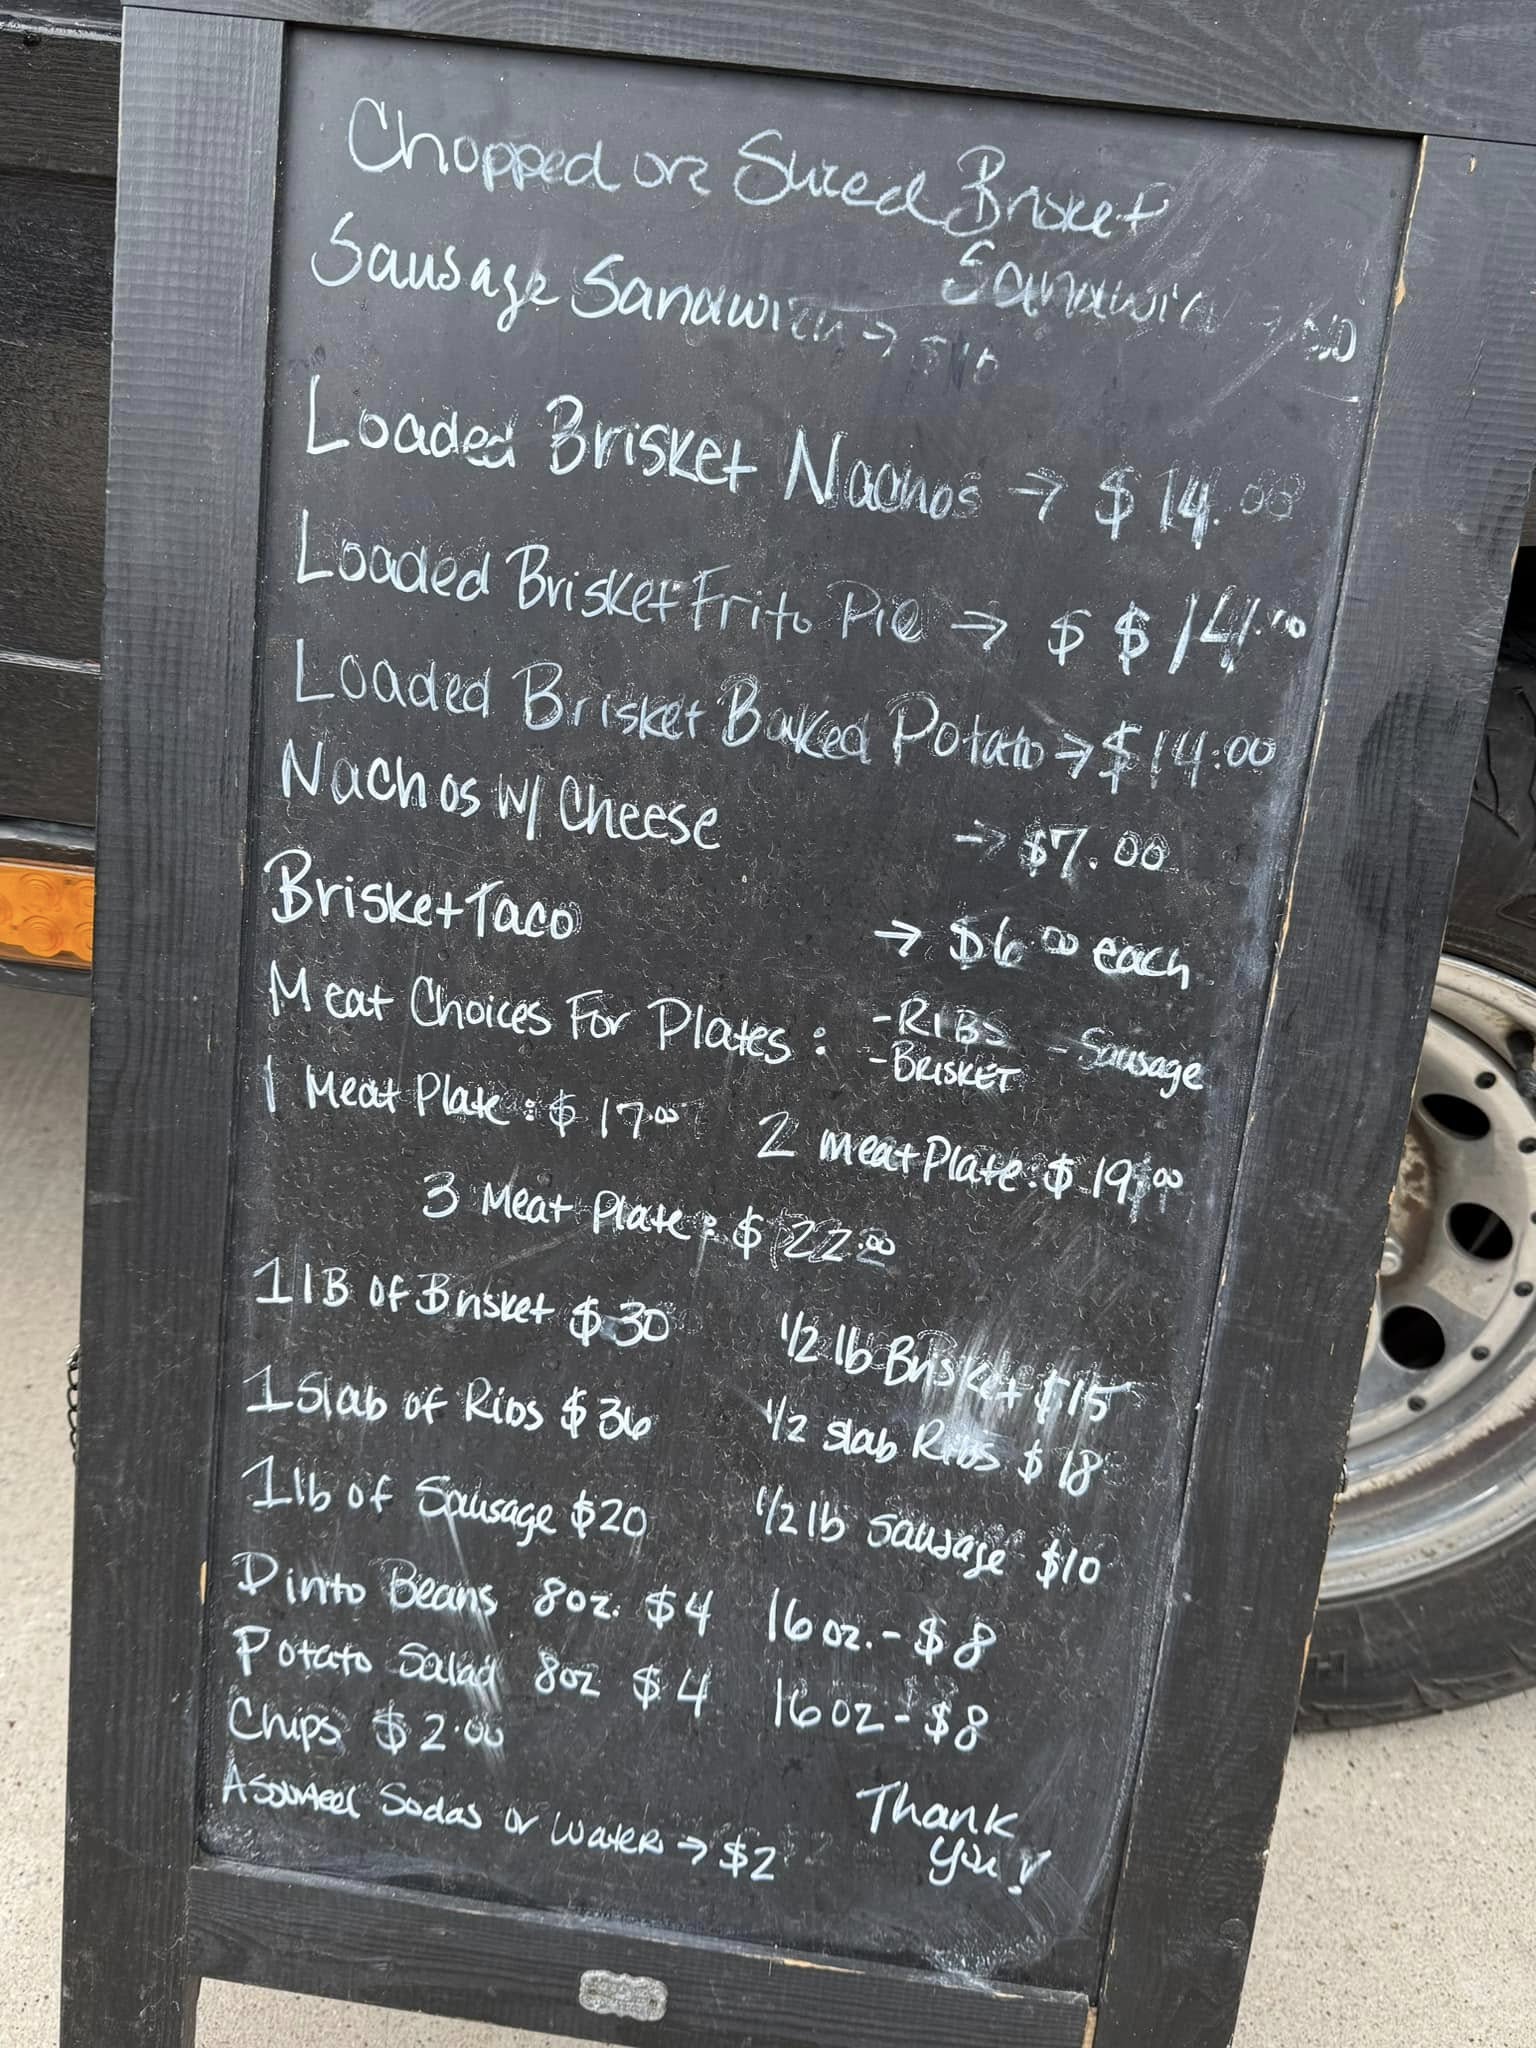 Chopped or Sliced Brisket
Sandwich → $10
Sausage Sandwich → $10
Loaded Brisket Nachos → $14.00
Loaded Brisket Frito Pie → $ $14.00
Loaded Brisket Baked Potato → $14.00
Nachos w/ Cheese → $7.00
Brisket Taco → $6.00 each
Meat Choices For Plates: - RIBS - Sausage
- BRISKET
1 Meat Plate: $17.00 2 meat Plate: $19.00
3 Meat Plate: $22.00
1 lB of Brisket $30 1/2 lb Brisket $15
1 Slab of Ribs $36 1/2 slab Ribs $18
1 lb of Sausage $20 1/2 lb Sausage $10
Pinto Beans 8oz. $4 16oz. - $8
Potato Salad 8oz $4 16oz - $8
Chips $2.00
Assorted Sodas or Water → $2
Thank
you!